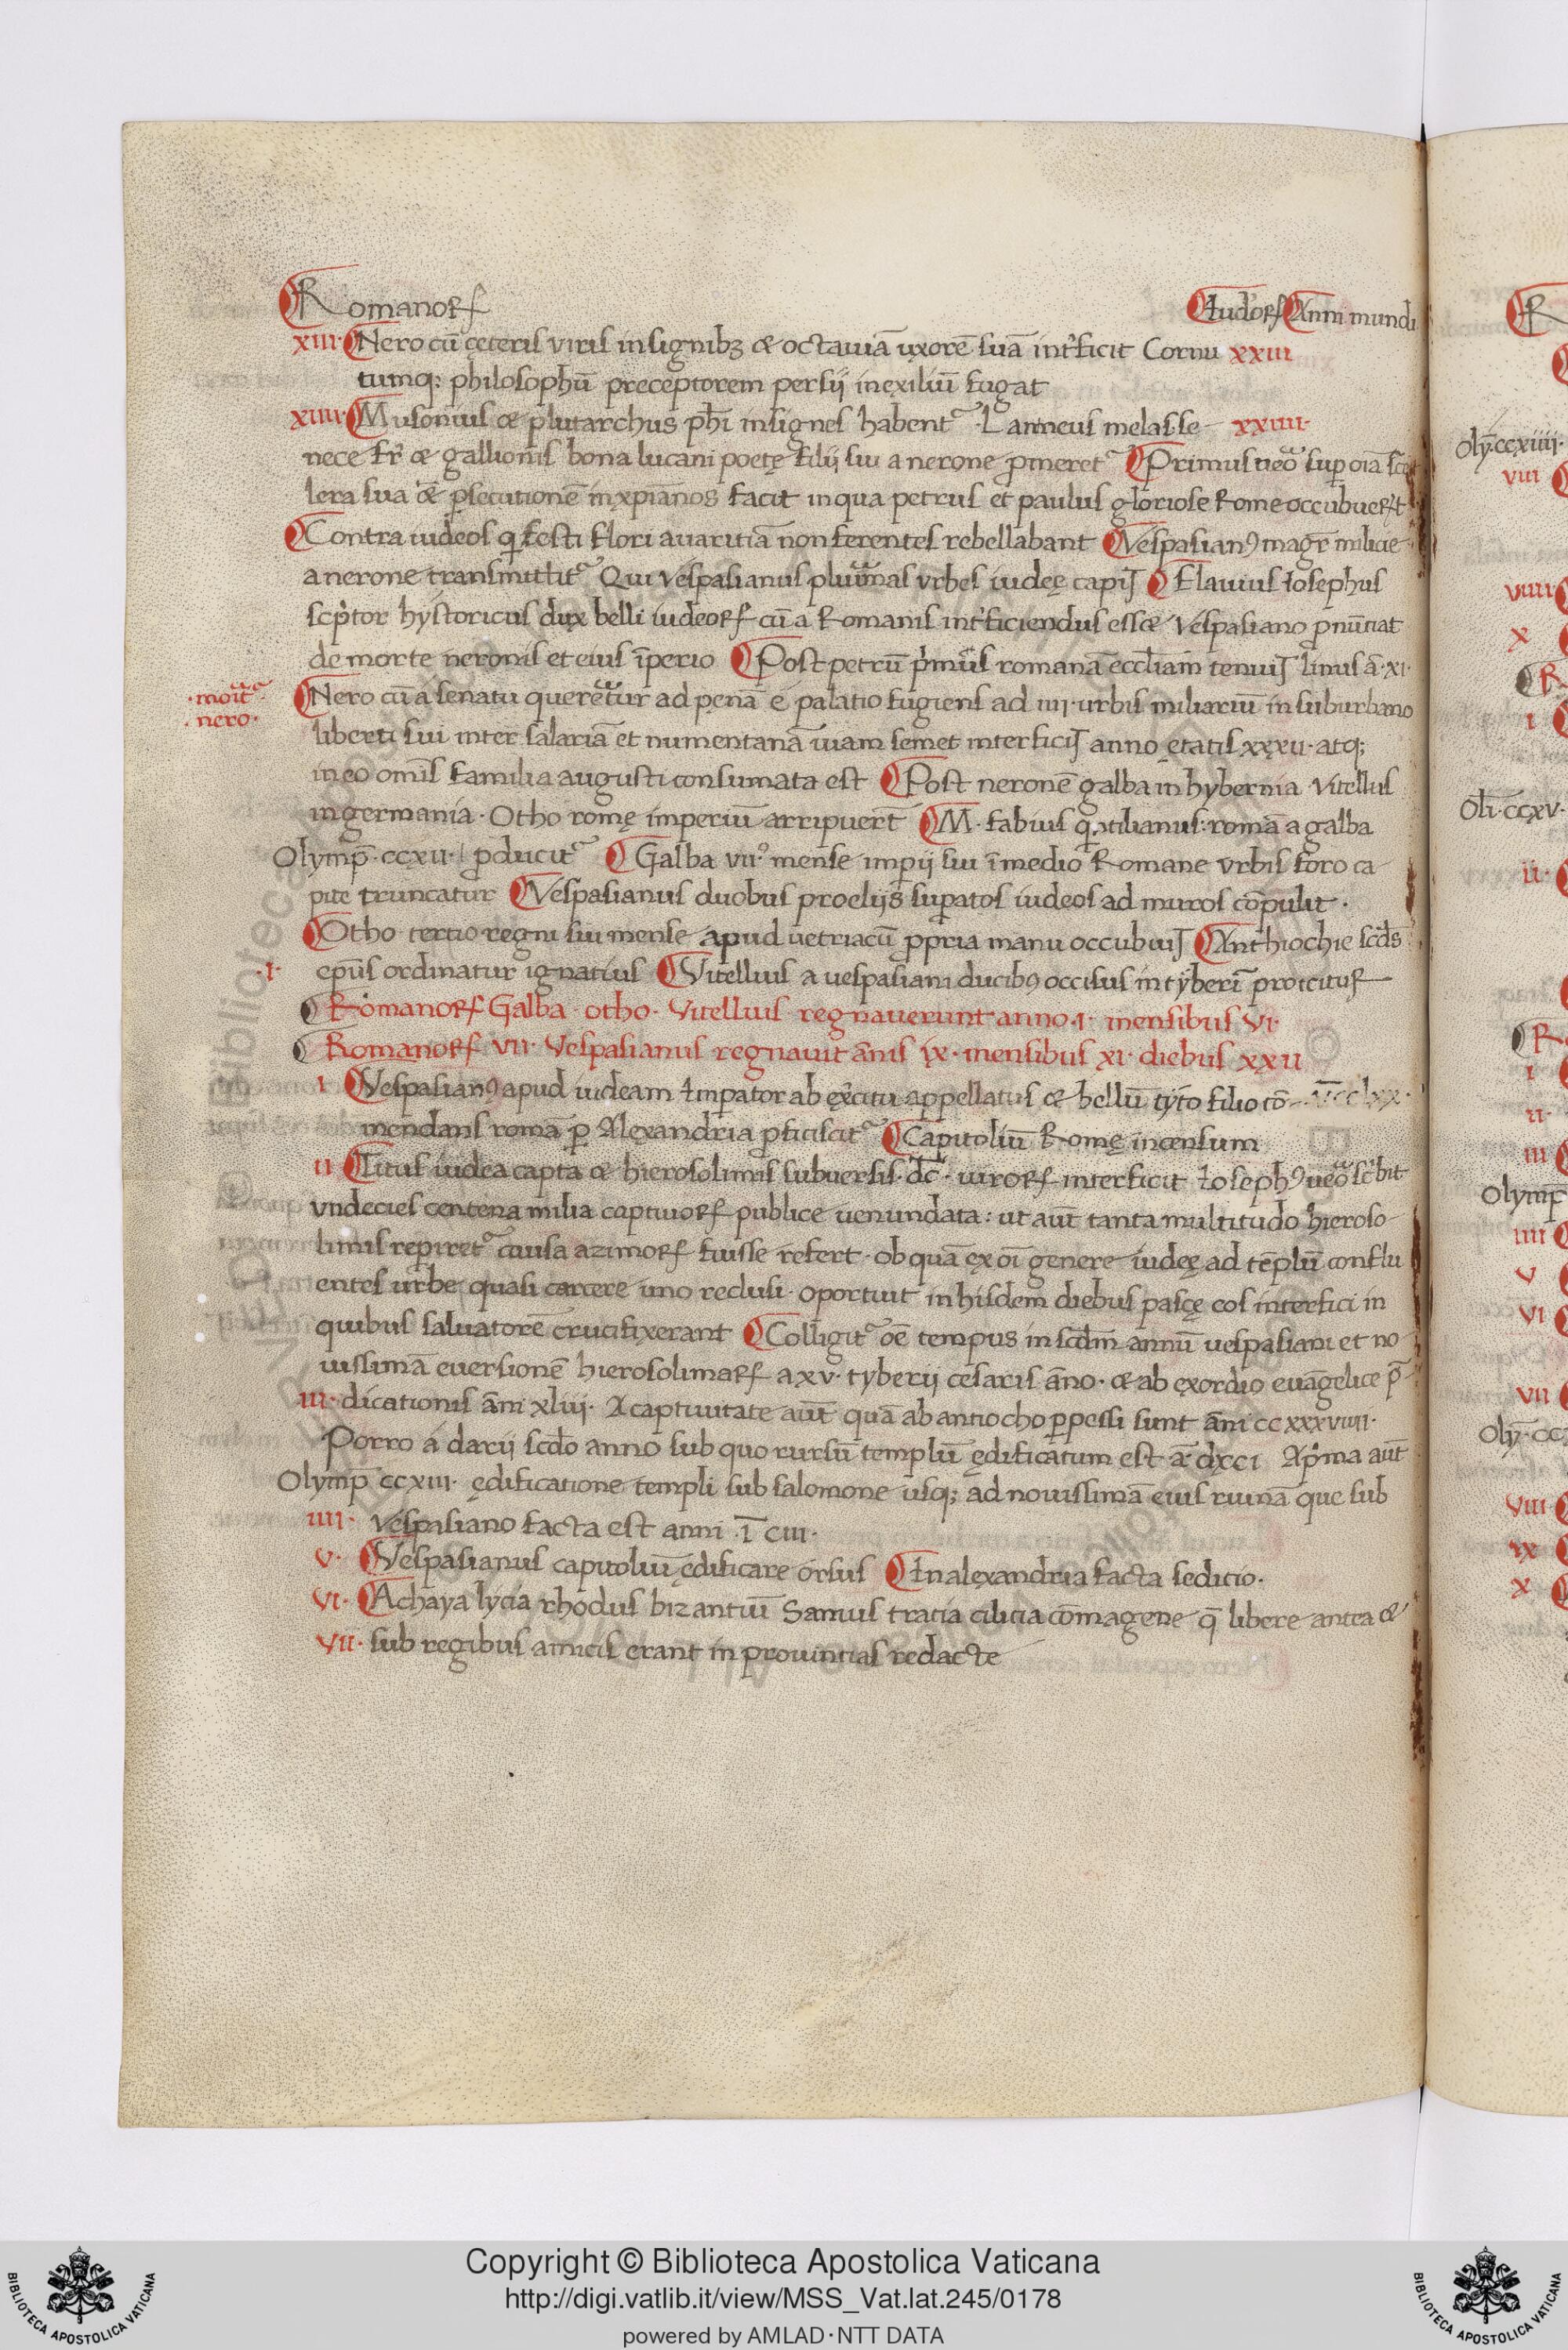 Romanoꝝ Iudoꝝ Anni mundi
xiii· Nero cū ceteris viris insignibȝ & octauiā uxorē suā int̓ficit Cornu xxiii
tumq; philosophū preceptorem persii in exiliū fugat
xiiii· Musonius & plutarchus ph̄i insignes habent᷑ · L anneus mela sse xxiiii·
nece fr̄ & gallionis bona lucani poetę filii sui a nerone ꝓmeret᷑ Primus ū sup oīa sce
lera sua & ꝑsecutionē in xp̄ianos facit in qua petrus et paulus gloriose Rome occubueꝝt
Contra iudeos q̇ festi flori auaritiā non ferentes rebellabant Vespasianꝰ magr̄ milicie
a nerone transmittit᷑ Qui vespasianus plurimas vrbes iudeę capit Flauius Iosephus
scp̓tor hystoricus dux belli iudeoꝝ cū a Romanis int̓ficiendus ess& vespasiano ꝓnūtiat
de morte neronis et eius īperio Post petrū p̓mus romanā eccl̄iam tenuit linus ā· xi·
·morit᷑ Nero cū a senatu quereretur ad pęnā e palatio fugiens ad iiii· urbis miliariū in suburbano
·nero· liberti sui inter salariā et numentanā uiam semet interficit anno ętatis xxxii· atq;
in eo om̄is familia augusti consumata est Post neronē galba in hybernia vitellus
in germania · Otho romę imperiū arripuer̄t M· fabius q̇ntilianus: romā a galba
Olymp̄· ccxii· ꝓducit᷑ Galba vii° mense imꝑii sui ī medio Romane vrbis foro ca
pite truncatur Vespasianus duobus proeliis suꝑatos iudeos ad muros cōpulit ·
Otho tertio regni sui mense apud uetriacū ꝓpria manu occubuit Anthiochie scd̄s
·i· ep̄us ordinatur ignatius Vitellius a uespasiani ducibꝰ occisus in tyberī proicitur
Romanoꝝ Galba · otho · Vitellius regnauerunt anno · i · mensibus VI·
Romanoꝝ VII· Vespasianus regnauit ānis ix· mensibus xi· diebus xxii
i Vespasianꝰ apud iudeam Imꝑator ab exercitu appellatus & bellū tyto filio cō v̄cclxx·
mendans romā ꝑ Alexandria ꝓficiscit᷑ Capitoliū Romę incensum
ii Titus iudea capta & hierosolimis subuersis · dc̄ · uiroꝝ interficit Iosephꝰ ū sc̓bit
vndecies centena milia captiuoꝝ publice uenundata: ut aūt tanta multitudo hieroso
limis reperiret᷑ causa azimoꝝ fuisse refert · ob quā ex oī genere iudeę ad tēplū conflu
entes urbe quasi carcere uno reclusi · oportuit in hisdem diebus pascę eos interfici in
quibus saluatorē crucifixerant Colligit᷑ oē tempus in scdm̄ annū uespasiani et no
uissimā euersionē hierosolimaꝝ a xv· tyberii cesaris āno · & ab exordio euāgelice p̄
iii· dicationis āni xliii· A captiuitate aūt quā ab antiocho ꝑpessi sunt āni cc xxxviiii·
Porro a darii scdo anno sub quo rursū templū ędificatum est ā dxci A p̓ma aūt
Olymp̄ ccxiii· ędificatione templi sub salomone usq; ad nouissimā eius ruinā que sub
iiii· vespasiano facta est anni · ī ciii·
v· Vespasianus capitoliū ędificare orsus In alexandria facta seditio·
vi· Achaya lycia rhodus bizantiū Samus tracia cilicia cōmagene q̄ libere antea &
vii· sub regibus amicis erant in prouintias redacte
Copyright © Biblioteca Apostolica Vaticana
http://digi.vatlib.it/view/MSS_Vat.lat.245/0178
powered by AMLAD·NTT DATA